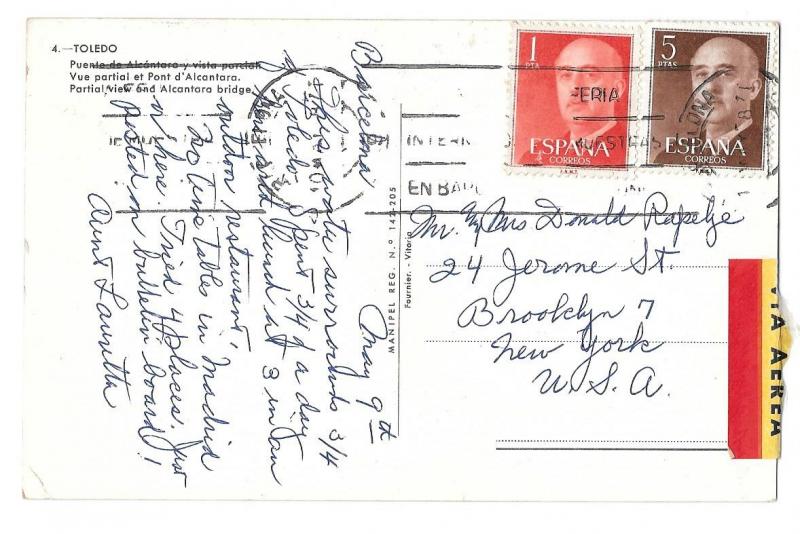 4.—TOLEDO
Puente de Alcántara y vista parcial.
Vue partial et Pont d'Alcantara.
Partial view and Alcantara bridge.
1
PTA
ESPAÑA
CORREOS
5
PTAS
ESPAÑA
CORREOS
FERIA
INTERN
MUESTRAS
EN BARC
LONA
Barcelona
May 9th
This water surrounds 3/4
of Toledo. Spent 3/4 of a day
here and lunch at 3 in an
outdoor restaurant.
No time tables in Madrid
or here. Tried 4 places. Just
posted on bulletin board!
Aunt Lauretta
MANIPEL REG. N.º 14-205
Fournier. - Vitoria
Mr. & Mrs Donald Rapelje
24 Jerome St.
Brooklyn 7
New York
U.S.A.
VIA AEREA